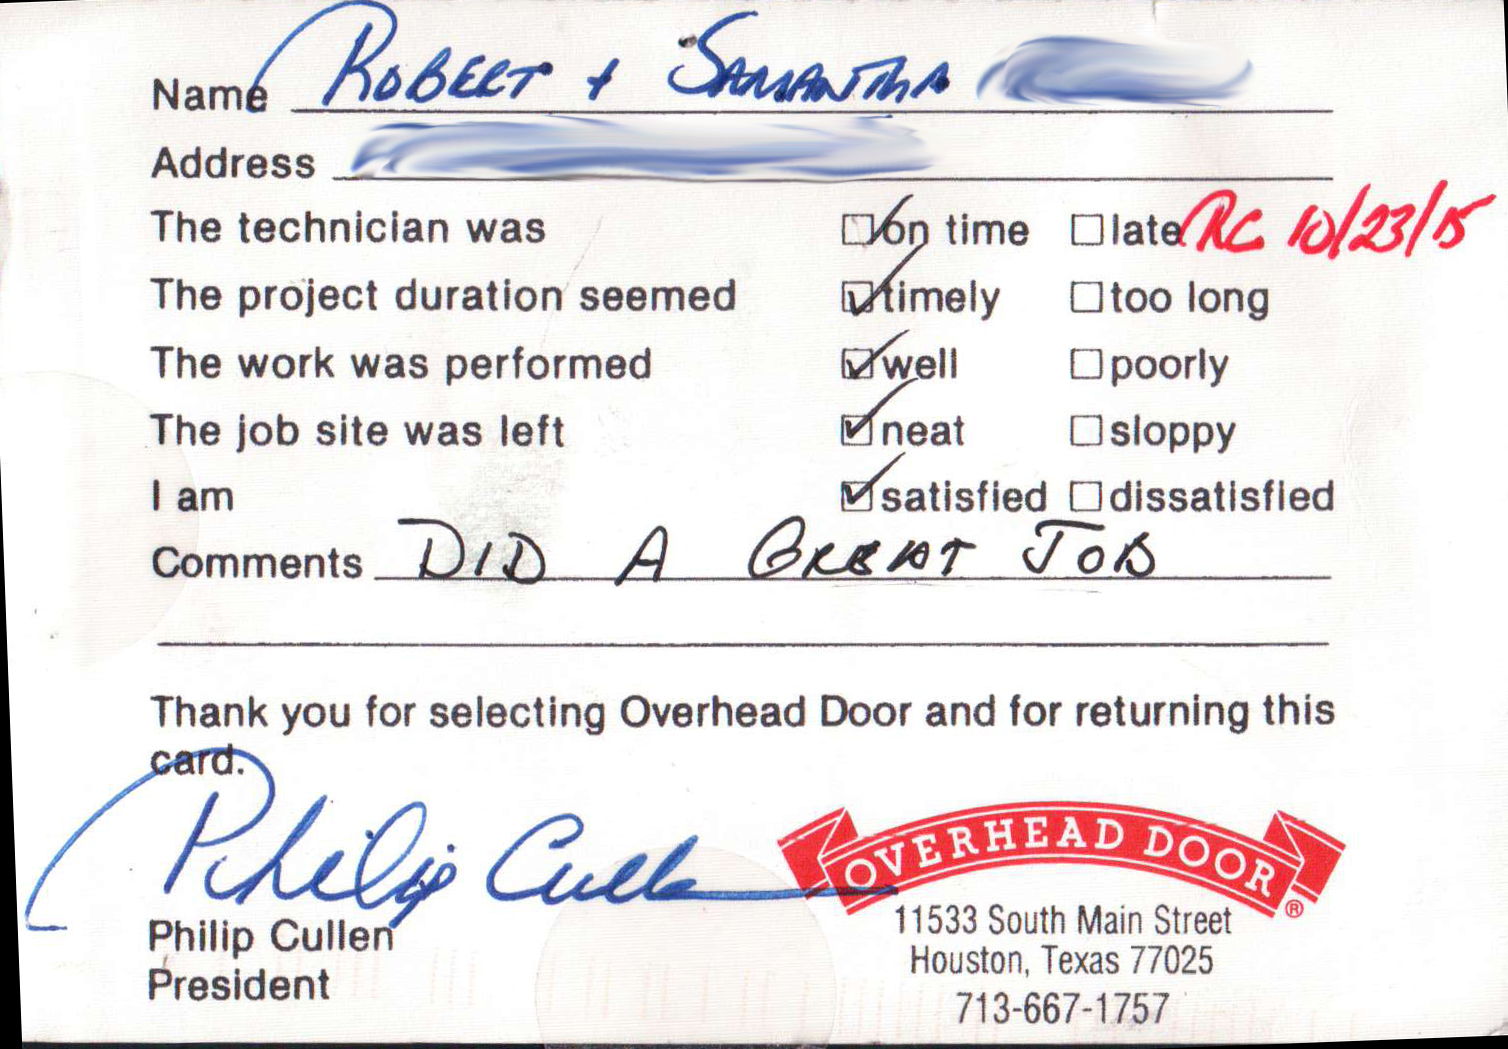 Name ROBERT + SAMANTHA
Address
The technician was ☑on time ☐late RC 10/23/15
The project duration seemed ☑timely ☐too long
The work was performed ☑well ☐poorly
The job site was left ☑neat ☐sloppy
I am ☑satisfied ☐dissatisfied
Comments DID A GREAT JOB
Thank you for selecting Overhead Door and for returning this
card.
Philip Cullen
OVERHEAD DOOR®
Philip Cullen
President
11533 South Main Street
Houston, Texas 77025
713-667-1757